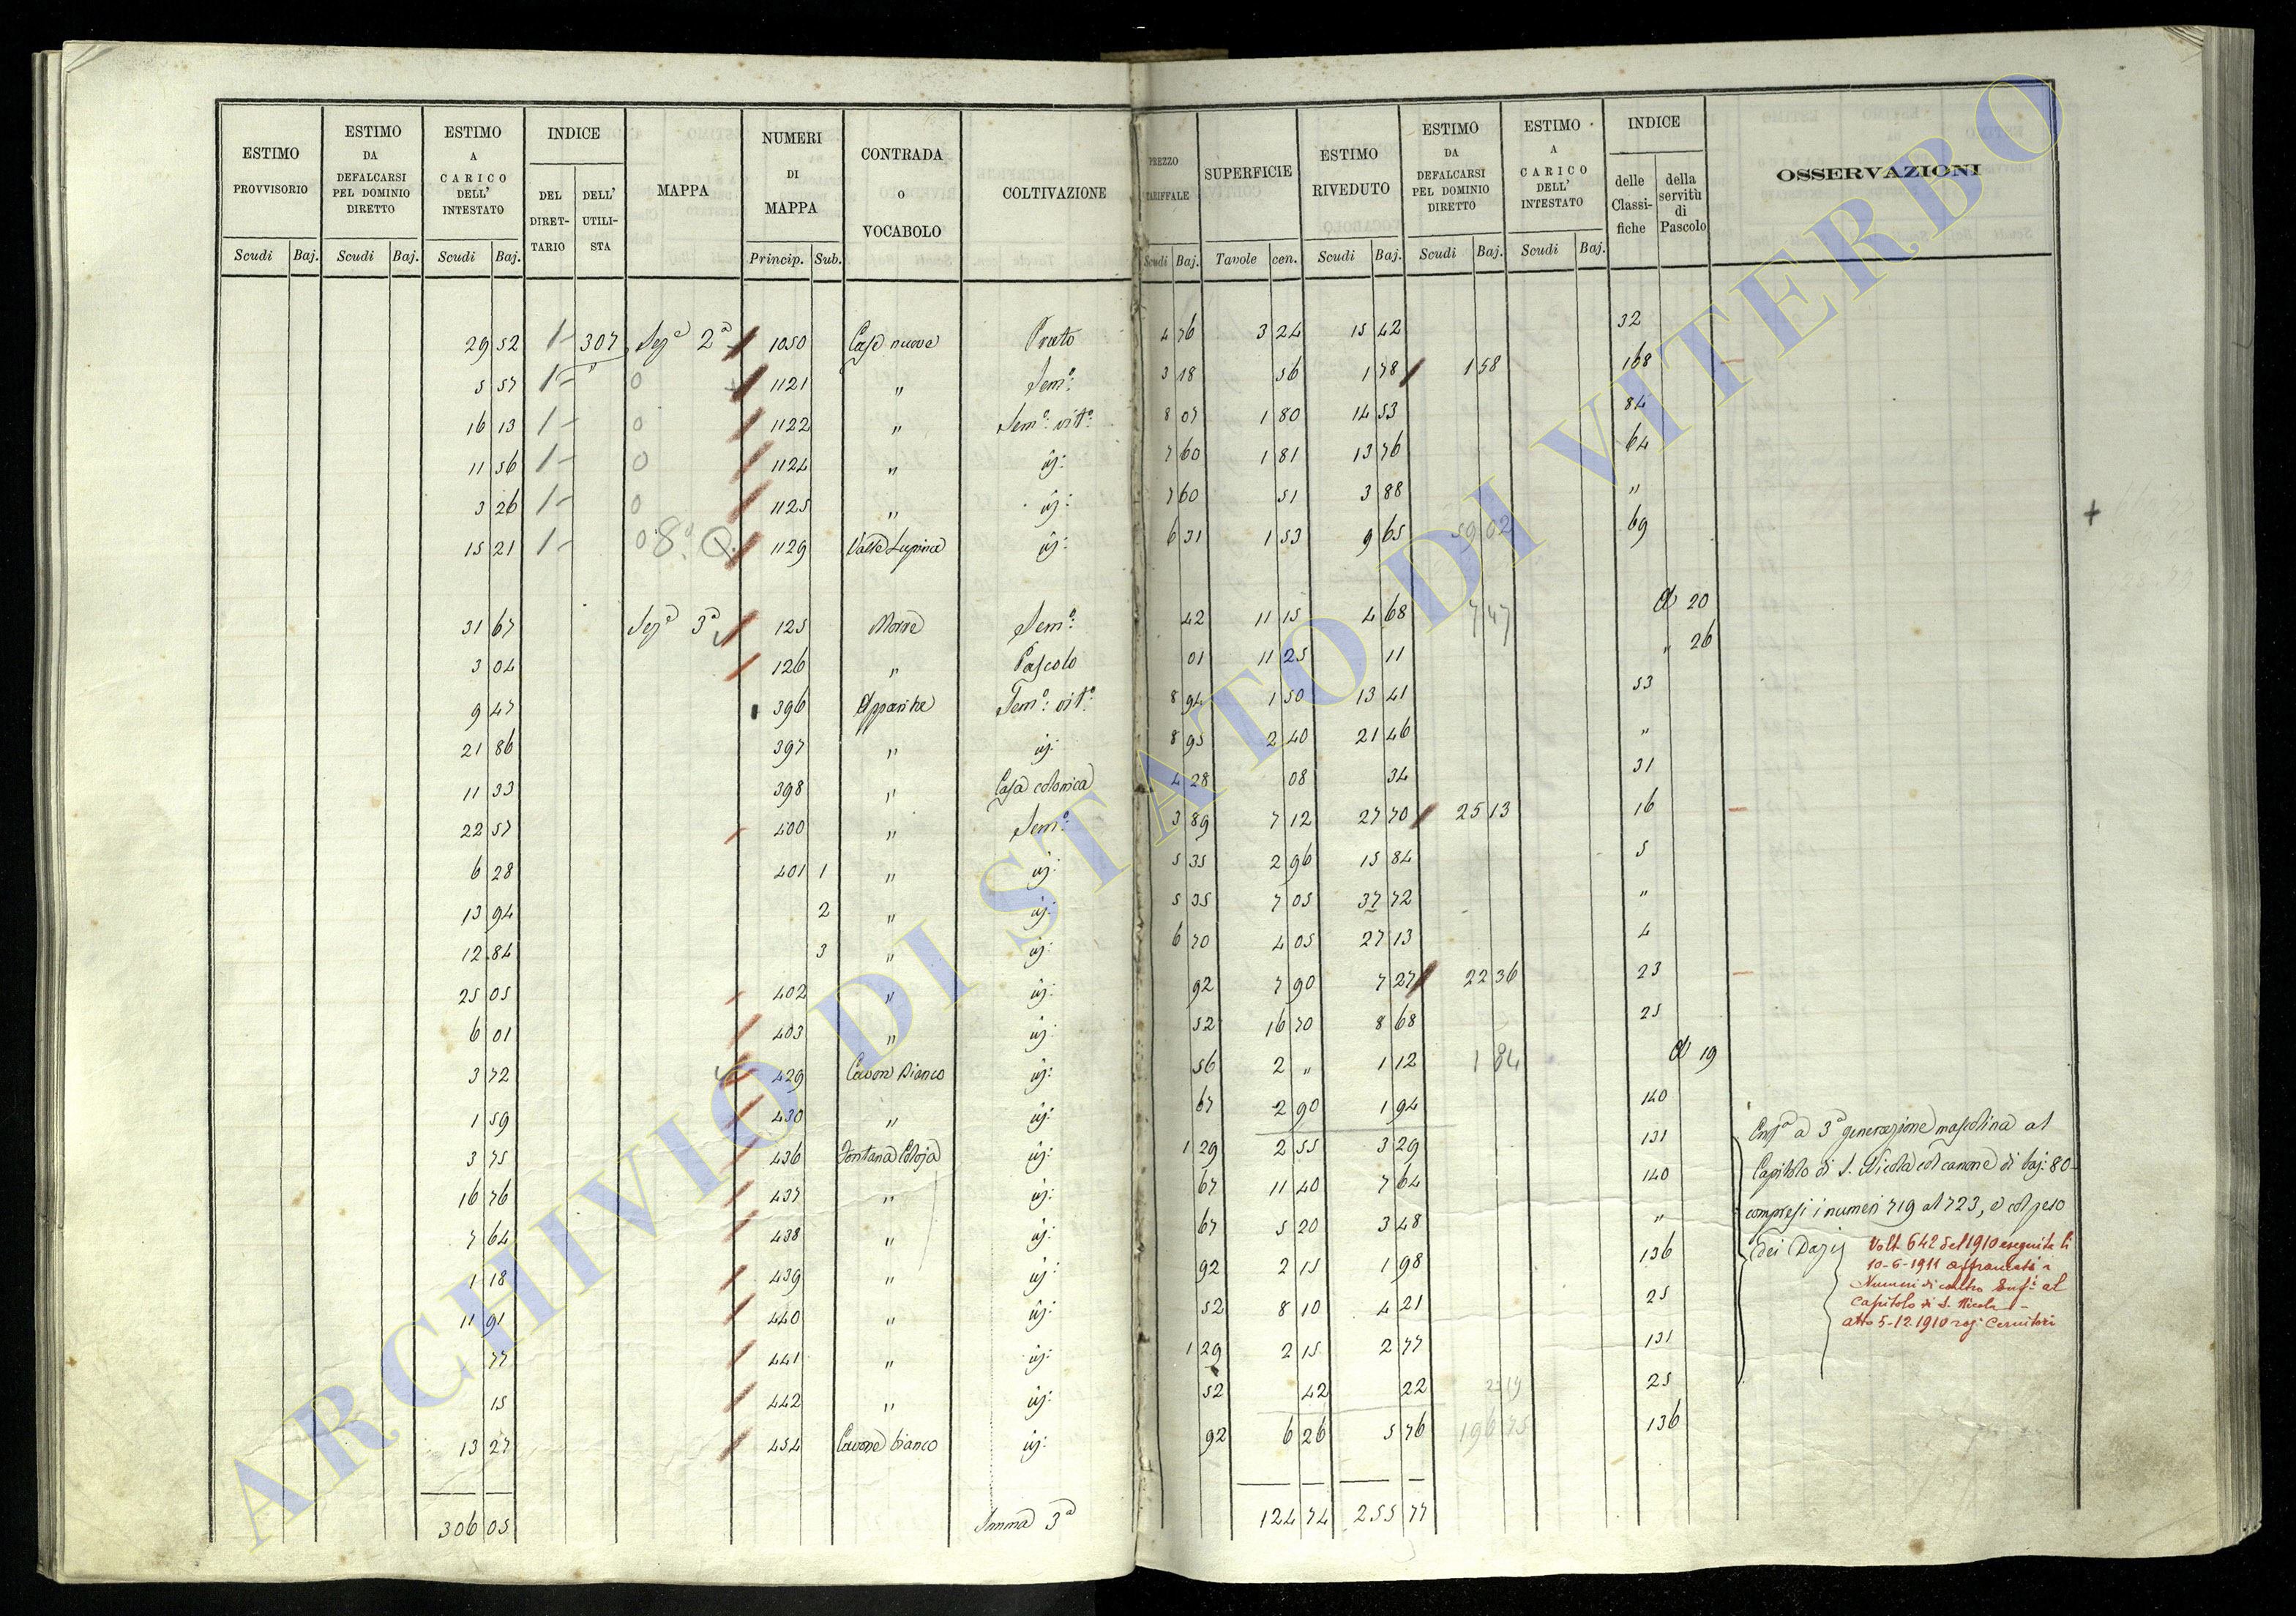 ESTIMO PROVVISORIO | ESTIMO DA DEFALCARSI PEL DOMINIO DIRETTO | ESTIMO A CARICO DELL' INTESTATO | INDICE | MAPPA | NUMERI DI MAPPA | CONTRADA o VOCABOLO | COLTIVAZIONE | PREZZO TARIFFALE | SUPERFICIE | ESTIMO RIVEDUTO | ESTIMO DA DEFALCARSI PEL DOMINIO DIRETTO | ESTIMO A CARICO DELL' INTESTATO | INDICE | OSSERVAZIONI
DEL DIRET-TARIO | DELL' UTILI-STA | delle Classi-fiche | della servitù di Pascolo
Scudi | Baj. | Scudi | Baj. | Scudi | Baj. | Princip. | Sub. | Scudi | Baj. | Tavole | cen. | Scudi | Baj. | Scudi | Baj. | Scudi | Baj.
29 52 | 1 | 307 | Sez.e 2a | 1050 | Case nuove | Prato | 4 76 | 3 24 | 15 42 | 32
5 57 | 1 | " | 0 | 1121 | " | Sem.o: | 3 18 | 56 | 1 78 | 1 58 | 168
16 13 | 1 | 0 | 1122 | " | Sem.o: vit.o: | 8 07 | 1 80 | 14 53 | 84
11 56 | 1 | 0 | 1124 | " | id: | 7 60 | 1 81 | 13 76 | 64
3 26 | 1 | 0 | 1125 | " | id: | 7 60 | 51 | 3 88 | "
15 21 | 1 | 0 8 | 1129 | Valle Lupina | id: | 6 31 | 1 53 | 9 65 | 59 02 | 69
31 67 | Sez.e 3a | 125 | Morre | Sem.o: | 42 | 11 15 | 4 68 | 7 47 | 20
3 04 | 126 | " | Pascolo | 01 | 11 25 | 11 | " 26
9 47 | 396 | Apparite | Sem.o: vit.o: | 8 94 | 1 50 | 13 41 | 53
21 86 | 397 | " | id: | 8 95 | 2 40 | 21 46 | "
11 33 | 398 | " | Casa colonica | 4 28 | 08 | 34 | 31
22 57 | 400 | " | Sem.o: | 3 89 | 7 12 | 27 70 | 25 13 | 16
6 28 | 401 | 1 | " | id: | 5 35 | 2 96 | 15 84 | 5
13 94 | 2 | " | id: | 5 35 | 7 05 | 37 72 | "
12 84 | 3 | " | id: | 6 70 | 4 05 | 27 13 | 4
25 05 | 402 | " | id: | 92 | 7 90 | 7 27 | 22 36 | 23
6 01 | 403 | " | id: | 52 | 16 70 | 8 68 | 25
3 72 | 429 | Cavone Bianco | id: | 56 | 2 " | 1 12 | 1 84 | 19
1 59 | 430 | " | id: | 67 | 2 90 | 1 94 | 140
3 75 | 436 | Fontana | id: | 1 29 | 2 55 | 3 29 | 131
16 76 | 437 | " | id: | 67 | 11 40 | 7 64 | 140
7 64 | 438 | " | id: | 67 | 5 20 | 3 48 | "
1 18 | 439 | " | id: | 92 | 2 15 | 1 98 | 136
11 91 | 440 | " | id: | 52 | 8 10 | 4 21 | 25
77 | 441 | " | id: | 1 29 | 2 15 | 2 77 | 131
15 | 442 | " | id: | 52 | 42 | 22 | 25
13 27 | 454 | Cavone bianco | id: | 92 | 6 26 | 5 76 | 196 75 | 136
306 05 | Somma 3a | 124 74 | 255 77
Enf.a a 3a generazione mascolina al
Capitolo di S. Nicola col canone di baj: 80
compresi i numeri 719 al 723, e col peso
dei Dazj
Volt. 642 del 1910 eseguita li
10-6-1911 affrancati i
Numeri di contro Enf.i al
Capitolo di S. Nicola -
atto 5-12 1910 rog:
ARCHIVIO DI STATO DI VITERBO